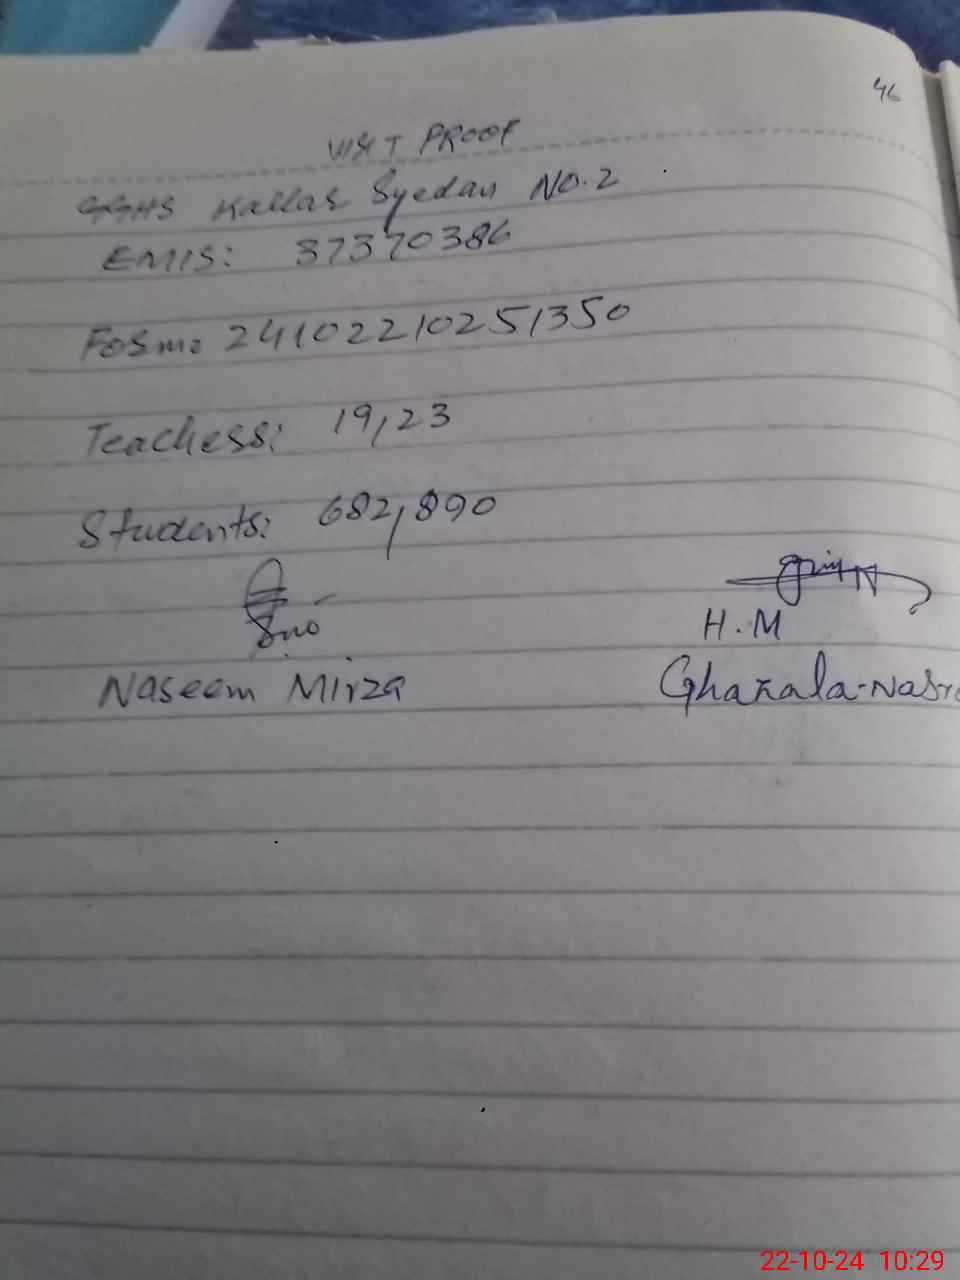 46
VISIT PROOF
GGHS Kallar Syedan NO.2
EMIS: 37370386
FOSM: 24102210251350
Teachers: 19,23
Students: 682,890
H.M
Naseem Mirza Ghazala-Nasre
22-10-24 10:29